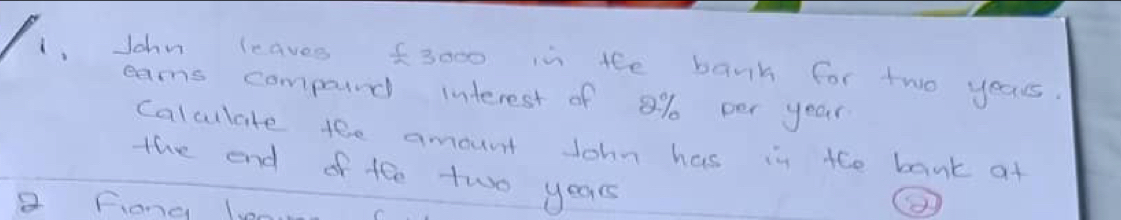 1. John leaves £3000 in the bank for two years.
earns compound interest of 2% per year.
Calculate the amount John has in the bank at
the end of the two years
2
2 Fiona